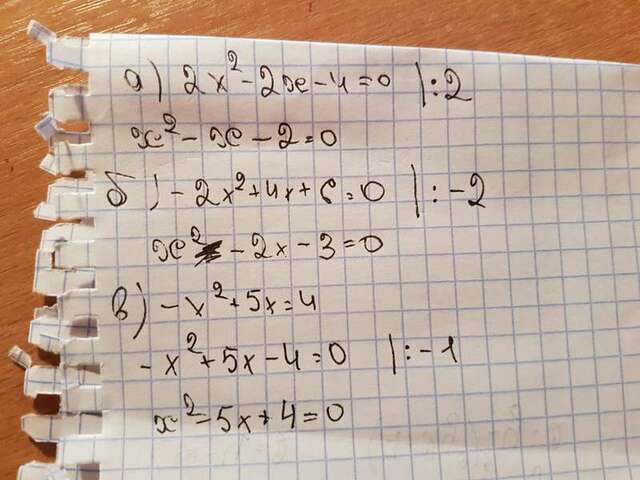 а) 2x² - 2x - 4 = 0 |:2
x² - x - 2 = 0
б) -2x² + 4x + 6 = 0 |:-2
x² - 2x - 3 = 0
в) -x² + 5x = 4
-x² + 5x - 4 = 0 |:-1
x² - 5x + 4 = 0